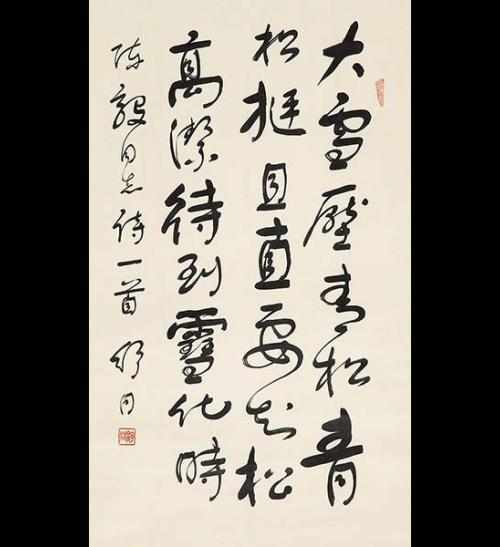 大雪壓青松青
松挺且直要知松
高潔待到雪化時
陈毅同志诗一首 舒同